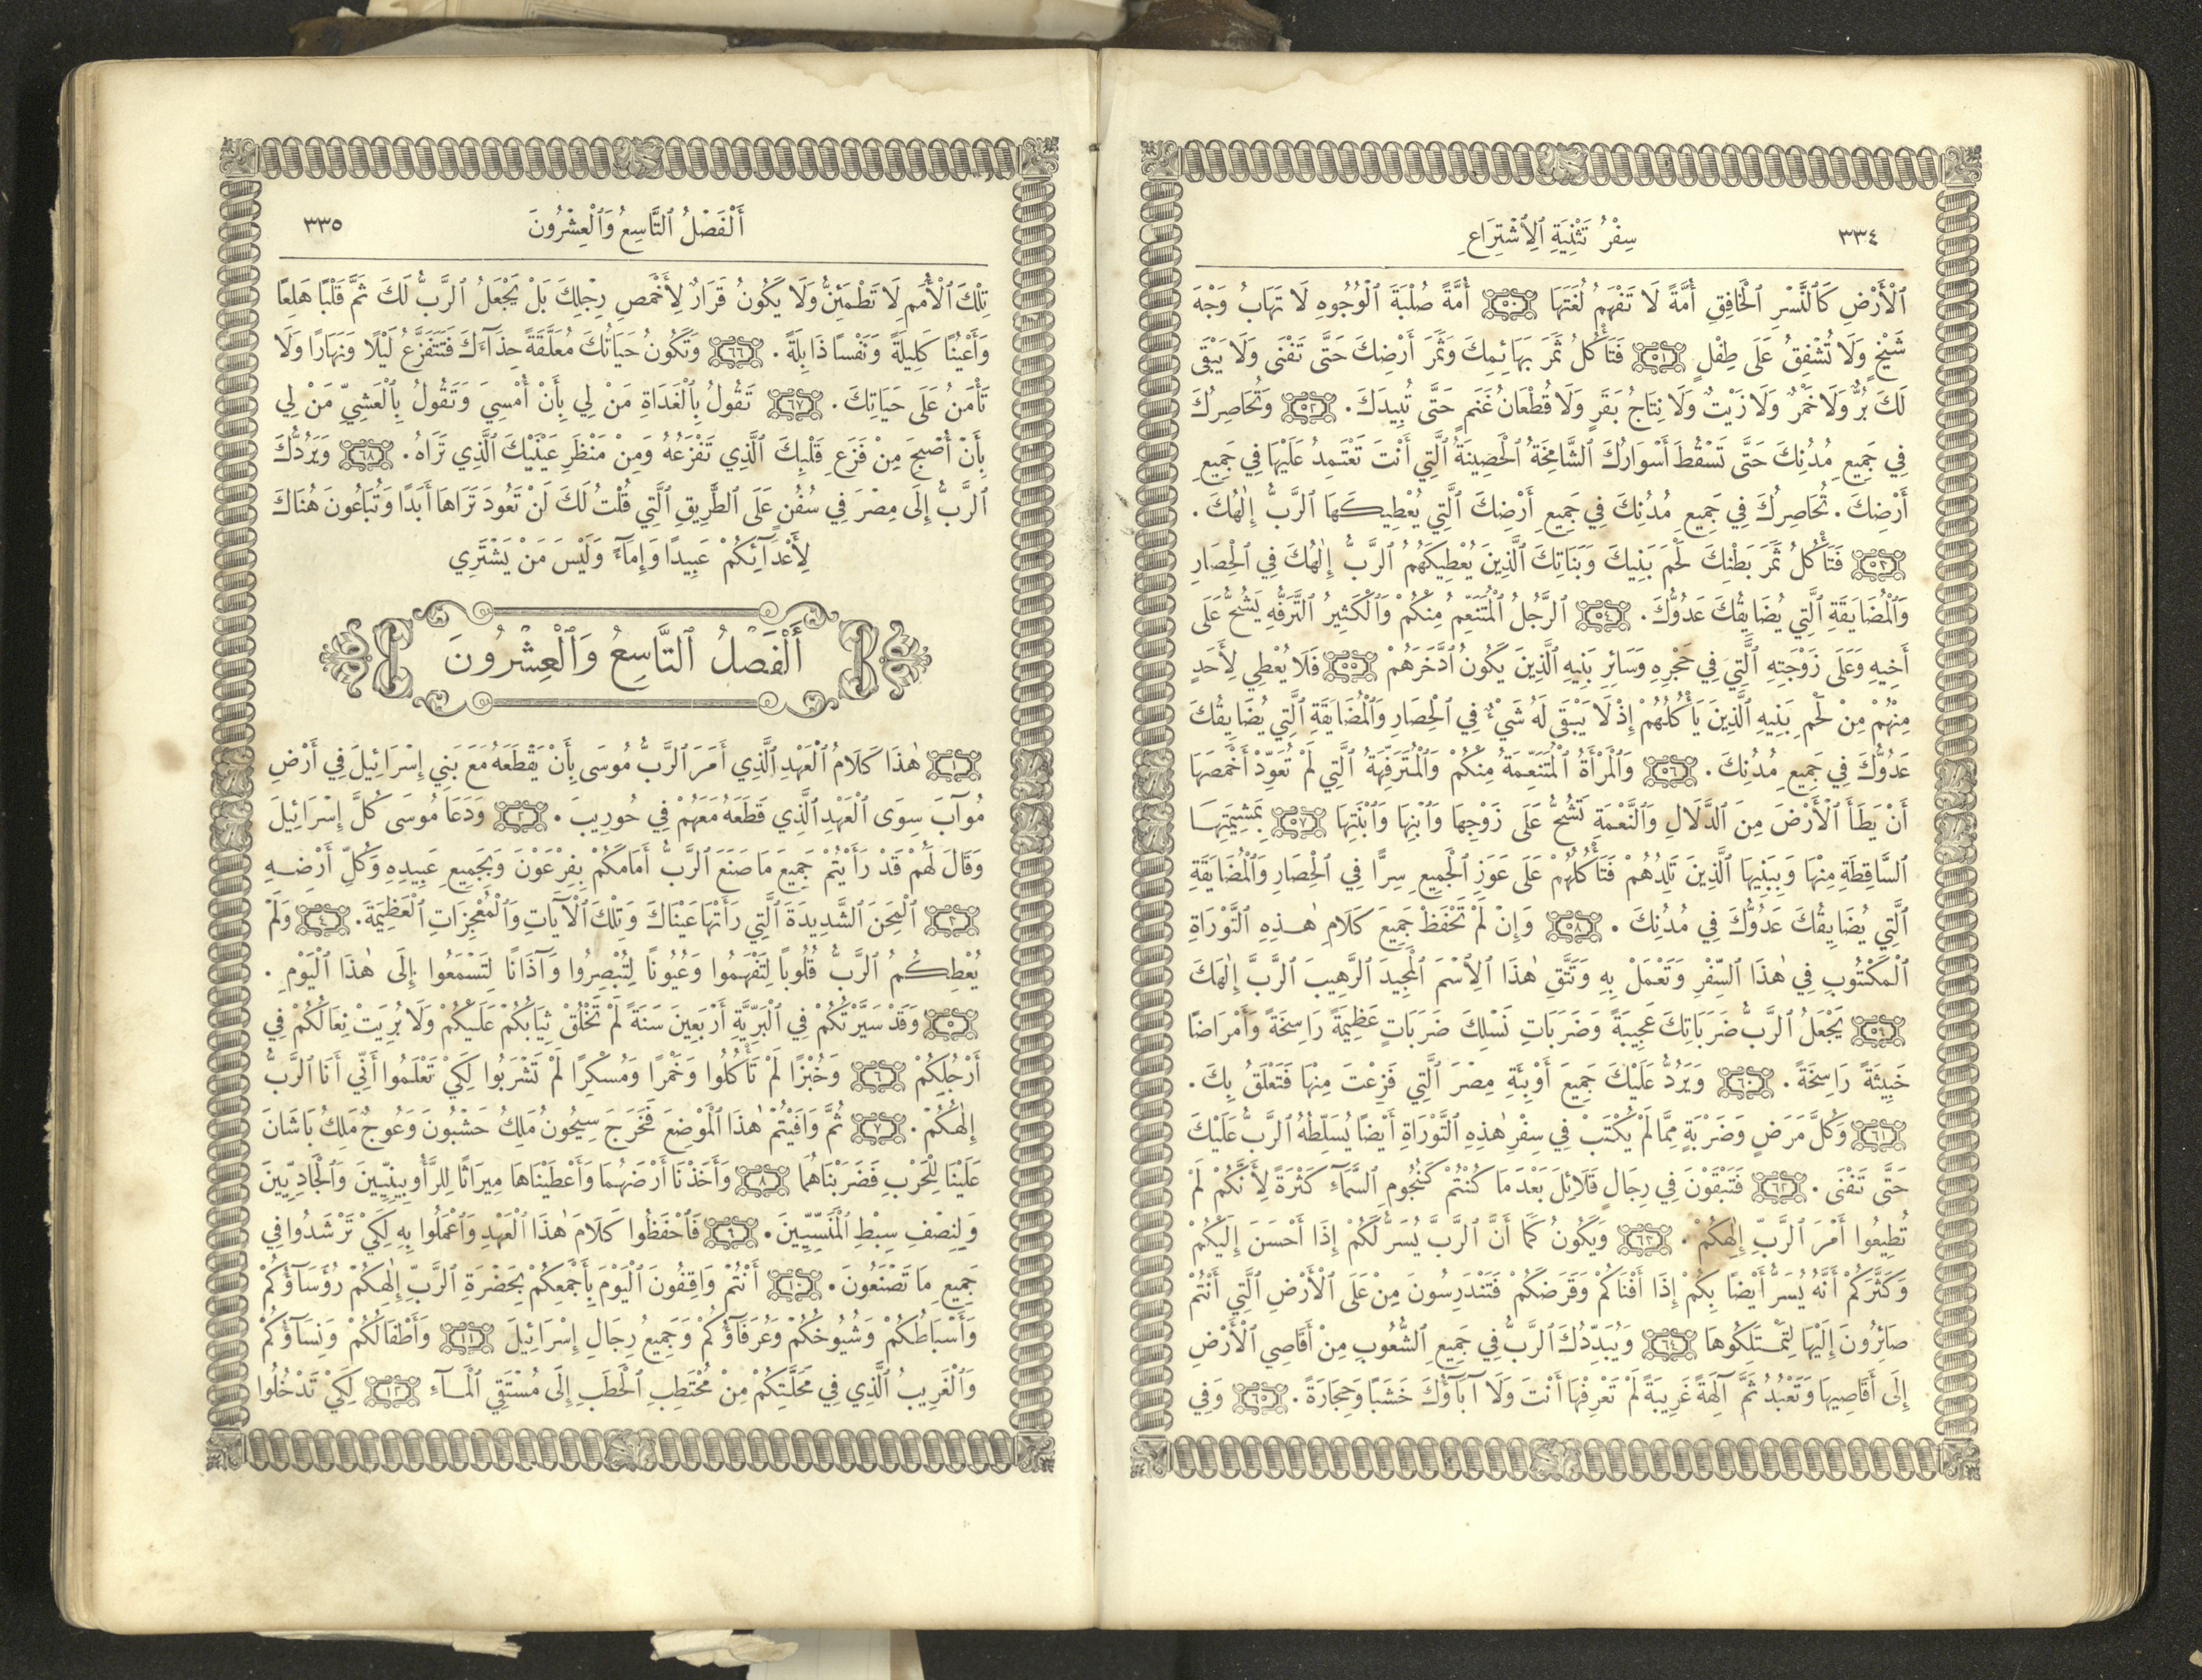 ٣٣٤
سِفْرُ تَثْنِيَةِ ٱلِٱشْتِرَاعِ
ٱلْأَرْضِ كَٱلنَّسْرِ ٱلْخَافِقِ أُمَّةً لَا تَفْهَمُ لُغَتَهَا ٥٠ أُمَّةً صُلْبَةَ ٱلْوُجُوهِ لَا تَهَابُ وَجْهَ
شَيْخٍ وَلَا تُشْفِقُ عَلَى طِفْلٍ ٥١ فَتَأْكُلُ ثَمَرَ بَهَائِمِكَ وَثَمَرَ أَرْضِكَ حَتَّى تَفْنَى وَلَا يَبْقَى
لَكَ بُرٌّ وَلَا خَمْرٌ وَلَا زَيْتٌ وَلَا نِتَاجُ بَقَرٍ وَلَا قُطْعَانُ غَنَمٍ حَتَّى تُبِيدَكَ. ٥٢ وَتُحَاصِرُكَ
فِي جَمِيعِ مُدُنِكَ حَتَّى تَسْقُطَ أَسْوَارُكَ ٱلشَّامِخَةُ ٱلْحَصِينَةُ ٱلَّتِي أَنْتَ تَعْتَمِدُ عَلَيْهَا فِي جَمِيعِ
أَرْضِكَ. تُحَاصِرُكَ فِي جَمِيعِ مُدُنِكَ فِي جَمِيعِ أَرْضِكَ ٱلَّتِي يُعْطِيكَهَا ٱلرَّبُّ إِلٰهُكَ.
٥٣ فَتَأْكُلُ ثَمَرَ بَطْنِكَ لَحْمَ بَنِيكَ وَبَنَاتِكَ ٱلَّذِينَ يُعْطِيكَهُمُ ٱلرَّبُّ إِلٰهُكَ فِي ٱلْحِصَارِ
وَٱلْمُضَايَقَةِ ٱلَّتِي يُضَايِقُكَ عَدُوُّكَ. ٥٤ ٱلرَّجُلُ ٱلْمُتَنَعِّمُ مِنْكُمْ وَٱلْكَثِيرُ ٱلتَّرَفُّهِ يَشُحُّ عَلَى
أَخِيهِ وَعَلَى زَوْجَتِهِ ٱلَّتِي فِي حَجْرِهِ وَسَائِرِ بَنِيهِ ٱلَّذِينَ يَكُونُ ٱدَّخَرَهُمْ ٥٥ فَلَا يُعْطِي لِأَحَدٍ
مِنْهُمْ مِنْ لَحْمِ بَنِيهِ ٱلَّذِينَ يَأْكُلُهُمْ إِذْ لَا يَبْقَى لَهُ شَيْءٌ فِي ٱلْحِصَارِ وَٱلْمُضَايَقَةِ ٱلَّتِي يُضَايِقُكَ
عَدُوُّكَ فِي جَمِيعِ مُدُنِكَ. ٥٦ وَٱلْمَرْأَةُ ٱلْمُتَنَعِّمَةُ مِنْكُمْ وَٱلْمُتَرَفِّهَةُ ٱلَّتِي لَمْ تُعَوِّدْ أَخْمَصَهَا
أَنْ يَطَأَ ٱلْأَرْضَ مِنَ ٱلدَّلَالِ وَٱلنَّعْمَةِ تَشُحُّ عَلَى زَوْجِهَا وَٱبْنِهَا وَٱبْنَتِهَا ٥٧ بِمَشِيمَتِهَا
ٱلسَّاقِطَةِ مِنْهَا وَبِبَنِيهَا ٱلَّذِينَ تَلِدُهُمْ فَتَأْكُلُهُمْ عَلَى عَوَزِ ٱلْجَمِيعِ سِرًّا فِي ٱلْحِصَارِ وَٱلْمُضَايَقَةِ
ٱلَّتِي يُضَايِقُكَ عَدُوُّكَ فِي مُدُنِكَ. ٥٨ وَإِنْ لَمْ تَحْفَظْ جَمِيعَ كَلَامِ هٰذِهِ ٱلتَّوْرَاةِ
ٱلْمَكْتُوبِ فِي هٰذَا ٱلسِّفْرِ وَتَعْمَلْ بِهِ وَتَتَّقِ هٰذَا ٱلِٱسْمَ ٱلْمَجِيدَ ٱلرَّهِيبَ ٱلرَّبَّ إِلٰهَكَ
٥٩ يَجْعَلُ ٱلرَّبُّ ضَرَبَاتِكَ عَجِيبَةً وَضَرَبَاتِ نَسْلِكَ ضَرَبَاتٍ عَظِيمَةً رَاسِخَةً وَأَمْرَاضًا
خَبِيثَةً رَاسِخَةً. ٦٠ وَيَرُدُّ عَلَيْكَ جَمِيعَ أَوْبِئَةِ مِصْرَ ٱلَّتِي فَزِعْتَ مِنْهَا فَتَعْلَقُ بِكَ.
٦١ وَكُلَّ مَرَضٍ وَضَرْبَةٍ مِمَّا لَمْ يُكْتَبْ فِي سِفْرِ هٰذِهِ ٱلتَّوْرَاةِ أَيْضًا يُسَلِّطُهُ ٱلرَّبُّ عَلَيْكَ
حَتَّى تَفْنَى. ٦٢ فَتَبْقَوْنَ فِي رِجَالٍ قَلَائِلَ بَعْدَ مَا كُنْتُمْ كَنُجُومِ ٱلسَّمَآءِ كَثْرَةً لِأَنَّكُمْ لَمْ
تُطِيعُوا أَمْرَ ٱلرَّبِّ إِلٰهِكُمْ. ٦٣ وَيَكُونُ كَمَا أَنَّ ٱلرَّبَّ يُسَرُّ لَكُمْ إِذَا أَحْسَنَ إِلَيْكُمْ
وَكَثَّرَكُمْ أَنَّهُ يُسَرُّ أَيْضًا بِكُمْ إِذَا أَفْنَاكُمْ وَقَرَضَكُمْ فَتَنْدَرِسُونَ مِنْ عَلَى ٱلْأَرْضِ ٱلَّتِي أَنْتُمْ
صَائِرُونَ إِلَيْهَا لِتَمْتَلِكُوهَا ٦٤ وَيُبَدِّدُكَ ٱلرَّبُّ فِي جَمِيعِ ٱلشُّعُوبِ مِنْ أَقَاصِي ٱلْأَرْضِ
إِلَى أَقَاصِيهَا وَتَعْبُدُ ثَمَّ آلِهَةً غَرِيبَةً لَمْ تَعْرِفْهَا أَنْتَ وَلَا آبَآؤُكَ خَشَبًا وَحِجَارَةً. ٦٥ وَفِي
أَلْفَصْلُ ٱلتَّاسِعُ وَٱلْعِشْرُونَ
٣٣٥
تِلْكَ ٱلْأُمَمِ لَا تَطْمَئِنُّ وَلَا يَكُونُ قَرَارٌ لِأَخْمَصِ رِجْلِكَ بَلْ يَجْعَلُ ٱلرَّبُّ لَكَ ثَمَّ قَلْبًا هَلِعًا
وَأَعْيُنًا كَلِيلَةً وَنَفْسًا ذَابِلَةً. ٦٦ وَتَكُونُ حَيَاتُكَ مُعَلَّقَةً حِذَآءَكَ فَتَتَفَزَّعُ لَيْلًا وَنَهَارًا وَلَا
تَأْمَنُ عَلَى حَيَاتِكَ. ٦٧ تَقُولُ بِٱلْغَدَاةِ مَنْ لِي بِأَنْ أُمْسِيَ وَتَقُولُ بِٱلْعَشِيِّ مَنْ لِي
بِأَنْ أُصْبِحَ مِنْ فَزَعِ قَلْبِكَ ٱلَّذِي تَفْزَعُهُ وَمِنْ مَنْظَرِ عَيْنَيْكَ ٱلَّذِي تَرَاهُ. ٦٨ وَيَرُدُّكَ
ٱلرَّبُّ إِلَى مِصْرَ فِي سُفُنٍ عَلَى ٱلطَّرِيقِ ٱلَّتِي قُلْتُ لَكَ لَنْ تَعُودَ تَرَاهَا أَبَدًا وَتُبَاعُونَ هُنَاكَ
لِأَعْدَآئِكُمْ عَبِيدًا وَإِمَآءً وَلَيْسَ مَنْ يَشْتَرِي
أَلْفَصْلُ ٱلتَّاسِعُ وَٱلْعِشْرُونَ
١ هٰذَا كَلَامُ ٱلْعَهْدِ ٱلَّذِي أَمَرَ ٱلرَّبُّ مُوسَى بِأَنْ يَقْطَعَهُ مَعَ بَنِي إِسْرَائِيلَ فِي أَرْضِ
مُوآبَ سِوَى ٱلْعَهْدِ ٱلَّذِي قَطَعَهُ مَعَهُمْ فِي حُورِيبَ. ٢ وَدَعَا مُوسَى كُلَّ إِسْرَائِيلَ
وَقَالَ لَهُمْ قَدْ رَأَيْتُمْ جَمِيعَ مَا صَنَعَ ٱلرَّبُّ أَمَامَكُمْ بِفِرْعَوْنَ وَبِجَمِيعِ عَبِيدِهِ وَكُلِّ أَرْضِهِ
٣ ٱلْمِحَنَ ٱلشَّدِيدَةَ ٱلَّتِي رَأَتْهَا عَيْنَاكَ وَتِلْكَ ٱلْآيَاتِ وَٱلْمُعْجِزَاتِ ٱلْعَظِيمَةَ. ٤ وَلَمْ
يُعْطِكُمُ ٱلرَّبُّ قُلُوبًا لِتَفْهَمُوا وَعُيُونًا لِتُبْصِرُوا وَآذَانًا لِتَسْمَعُوا إِلَى هٰذَا ٱلْيَوْمِ.
٥ وَقَدْ سَيَّرْتُكُمْ فِي ٱلْبَرِّيَّةِ أَرْبَعِينَ سَنَةً لَمْ تَخْلُقْ ثِيَابُكُمْ عَلَيْكُمْ وَلَا بُرِيَتْ نِعَالُكُمْ فِي
أَرْجُلِكُمْ ٦ وَخُبْزًا لَمْ تَأْكُلُوا وَخَمْرًا وَمُسْكِرًا لَمْ تَشْرَبُوا لِكَيْ تَعْلَمُوا أَنِّي أَنَا ٱلرَّبُّ
إِلٰهُكُمْ. ٧ ثُمَّ وَافَيْتُمْ هٰذَا ٱلْمَوْضِعَ فَخَرَجَ سِيحُونُ مَلِكُ حَشْبُونَ وَعُوجُ مَلِكُ بَاشَانَ
عَلَيْنَا لِلْحَرْبِ فَضَرَبْنَاهُمَا ٨ وَأَخَذْنَا أَرْضَهُمَا وَأَعْطَيْنَاهَا مِيرَاثًا لِلرَّأُوبِينِيِّينَ وَٱلْجَادِيِّينَ
وَلِنِصْفِ سِبْطِ ٱلْمَنَسِّيِّينَ. ٩ فَٱحْفَظُوا كَلَامَ هٰذَا ٱلْعَهْدِ وَٱعْمَلُوا بِهِ لِكَيْ تَرْشَدُوا فِي
جَمِيعِ مَا تَصْنَعُونَ. ١٠ أَنْتُمْ وَاقِفُونَ ٱلْيَوْمَ بِأَجْمَعِكُمْ بِحَضْرَةِ ٱلرَّبِّ إِلٰهِكُمْ رُؤَسَآؤُكُمْ
وَأَسْبَاطُكُمْ وَشُيُوخُكُمْ وَعُرَفَآؤُكُمْ وَجَمِيعُ رِجَالِ إِسْرَائِيلَ ١١ وَأَطْفَالُكُمْ وَنِسَآؤُكُمْ
وَٱلْغَرِيبُ ٱلَّذِي فِي مَحَلَّتِكُمْ مِنْ مُحْتَطِبِ ٱلْحَطَبِ إِلَى مُسْتَقِي ٱلْمَآءِ ١٢ لِكَيْ تَدْخُلُوا